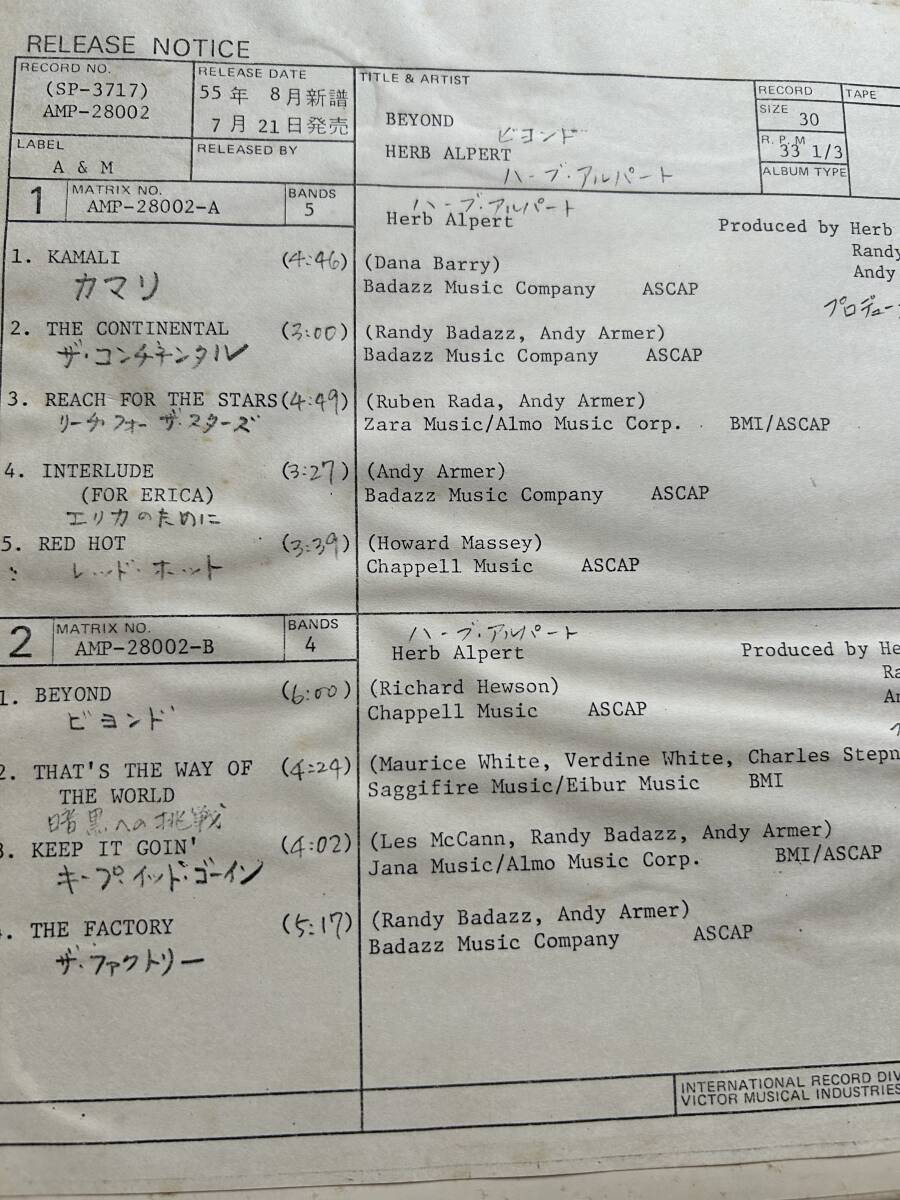 RELEASE NOTICE
RECORD NO.
(SP-3717)
AMP-28002
RELEASE DATE
55年 8月新譜
7月21日発売
TITLE & ARTIST
BEYOND
ビヨンド
HERB ALPERT
ハーブ・アルパート
RECORD
TAPE
SIZE
30
R.P.M
33 1/3
ALBUM TYPE
LABEL
A & M
RELEASED BY
1
MATRIX NO.
AMP-28002-A
BANDS
5
ハーブ・アルパート
Herb Alpert
Produced by Herb
Randy
Andy
プロデュー
1. KAMALI (4:46) (Dana Barry)
カマリ Badazz Music Company ASCAP
2. THE CONTINENTAL (3:00) (Randy Badazz, Andy Armer)
ザ・コンチネンタル Badazz Music Company ASCAP
3. REACH FOR THE STARS (4:49) (Ruben Rada, Andy Armer)
リーチ・フォー・ザ・スターズ Zara Music/Almo Music Corp. BMI/ASCAP
4. INTERLUDE (3:27) (Andy Armer)
(FOR ERICA) Badazz Music Company ASCAP
エリカのために
5. RED HOT (3:39) (Howard Massey)
レッド・ホット Chappell Music ASCAP
2
MATRIX NO.
AMP-28002-B
BANDS
4
ハーブ・アルパート
Herb Alpert
Produced by He
Ra
An
1. BEYOND (6:00) (Richard Hewson)
ビヨンド Chappell Music ASCAP
2. THAT'S THE WAY OF (4:24) (Maurice White, Verdine White, Charles Stepn
THE WORLD Saggifire Music/Eibur Music BMI
暗黒への挑戦
3. KEEP IT GOIN' (4:02) (Les McCann, Randy Badazz, Andy Armer)
キープ・イット・ゴーイン Jana Music/Almo Music Corp. BMI/ASCAP
. THE FACTORY (5:17) (Randy Badazz, Andy Armer)
ザ・ファクトリー Badazz Music Company ASCAP
INTERNATIONAL RECORD DIV
VICTOR MUSICAL INDUSTRIES